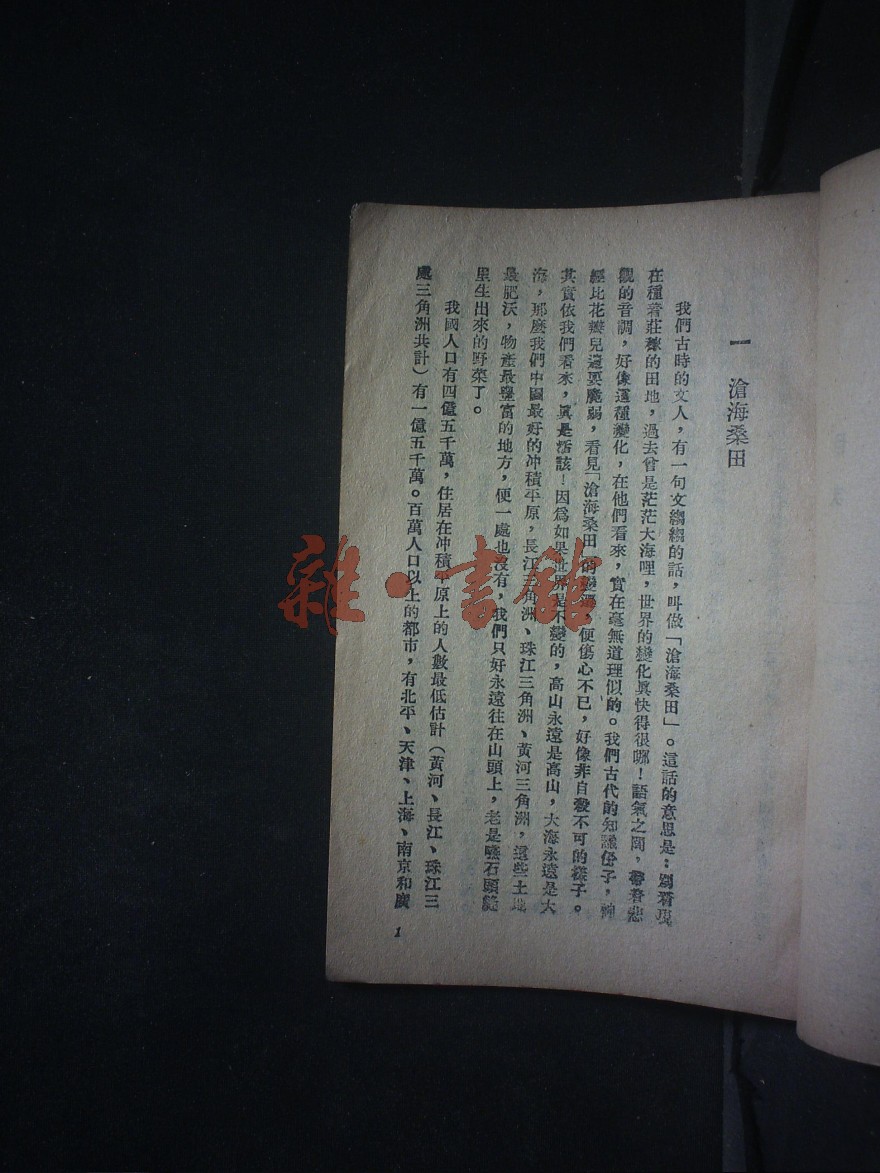 一 滄海桑田
我們古時的文人，有一句文縐縐的話，叫做「滄海桑田」。這話的意思是：別看現
在種着莊稼的田地，過去曾是茫茫大海哩，世界的變化眞快得很哪！語氣之間，帶着悲
觀的音調，好像這種變化，在他們看來，實在毫無道理似的。我們古代的知識份子，神
經比花瓣兒還要脆弱，看見「滄海桑田」的變遷，便傷心不已，好像非自殺不可的樣子。
其實依我們看來，眞是活該！因爲如果世界是不變的，高山永遠是高山，大海永遠是大
海，那麼我們中國最好的冲積平原，長江三角洲、珠江三角洲、黃河三角洲，這些土地
最肥沃，物產最豐富的地方，便一處也沒有，我們只好永遠往在山頭上，老是嚥石頭縫
里生出來的野菜了。
我國人口有四億五千萬，住居在冲積平原上的人數最低估計（黃河、長江、珠江三
處三角洲共計）有一億五千萬。百萬人口以上的都市，有北平、天津、上海、南京和廣
1
雜·書館